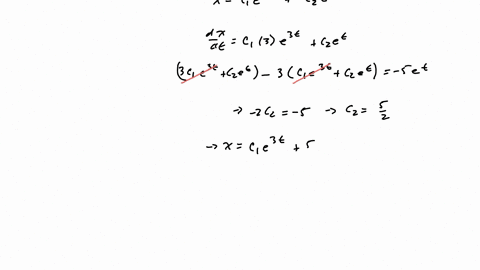 x = c₁e + c₂e
dx/dt = c₁(3)e^{3t} + c₂e^t
(3c₁e^{3t} + c₂e^t) - 3(c₁e^{3t} + c₂e^t) = -5e^t
→ -2c₂ = -5 → c₂ = 5/2
→ x = c₁e^{3t} + 5